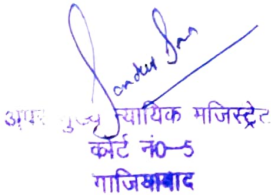 अपर मुख्य न्यायिक मजिस्ट्रेट
कोर्ट नं0-5
गाजियाबाद